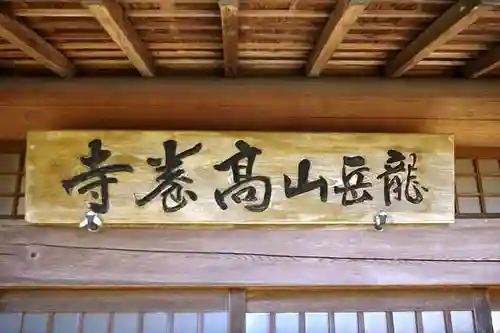 龍岳山高巻寺